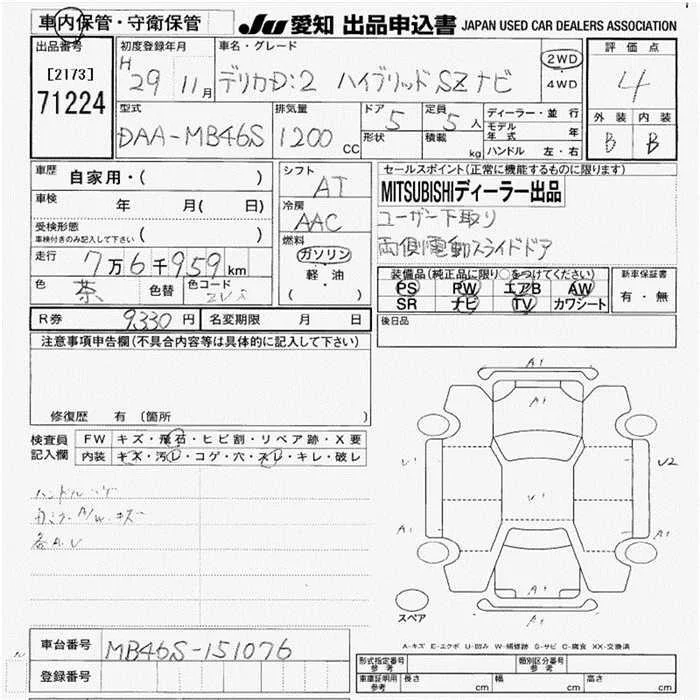 車内保管・守衛保管 JU 愛知 出品申込書 JAPAN USED CAR DEALERS ASSOCIATION
出品番号 初度登録年月 車名・グレード 評価点
[2173] H 29 11月 デリカD:2 ハイブリッドSZナビ 2WD 4WD 4
71224
型式 排気量 ドア 5 定員 5人 ディーラー・並行 外装 内装
DAA-MB46S 1200 CC 形状 積載 kg モデル年式 年 B B
ハンドル 左・右
車歴 自家用・( ) シフト AT セールスポイント(正常に機能するものに限ります)
車検 年 月( 日) 冷房 AAC MITSUBISHIディーラー出品
受検形態 ( ) ユーザー下取り
車検付きのみ記入して下さい 燃料 両側電動スライドドア
走行 7万6千959km ガソリン 装備品(純正品に限り○をつけてください) 新車保証書
色 茶 色替 色コード 軽油 PS PW エアB AW 有・無
( ・ ) SR ナビ TV カワシート
R券 9330円 名変期限 月 日 後日品
注意事項申告欄(不具合内容等は具体的に記入して下さい)
修復歴 有 (箇所
検査員 FW キズ・飛石・ヒビ割・リペア跡・X要
記入欄 内装 キズ・汚レ・コゲ・穴・スレ・キレ・破レ
A1
A1
U1 U1 U2
A1 A1
A1
A1
各A.U
スペア
A-キズ E-エクボ U-凹み W-補修跡 S-サビ C-腐食 XX-交換済
車台番号 MB46S-151076
登録番号
型式指定番号 参考 類別区分番号 参考
車庫証明用 参考 長さ cm 幅 cm 高さ cm